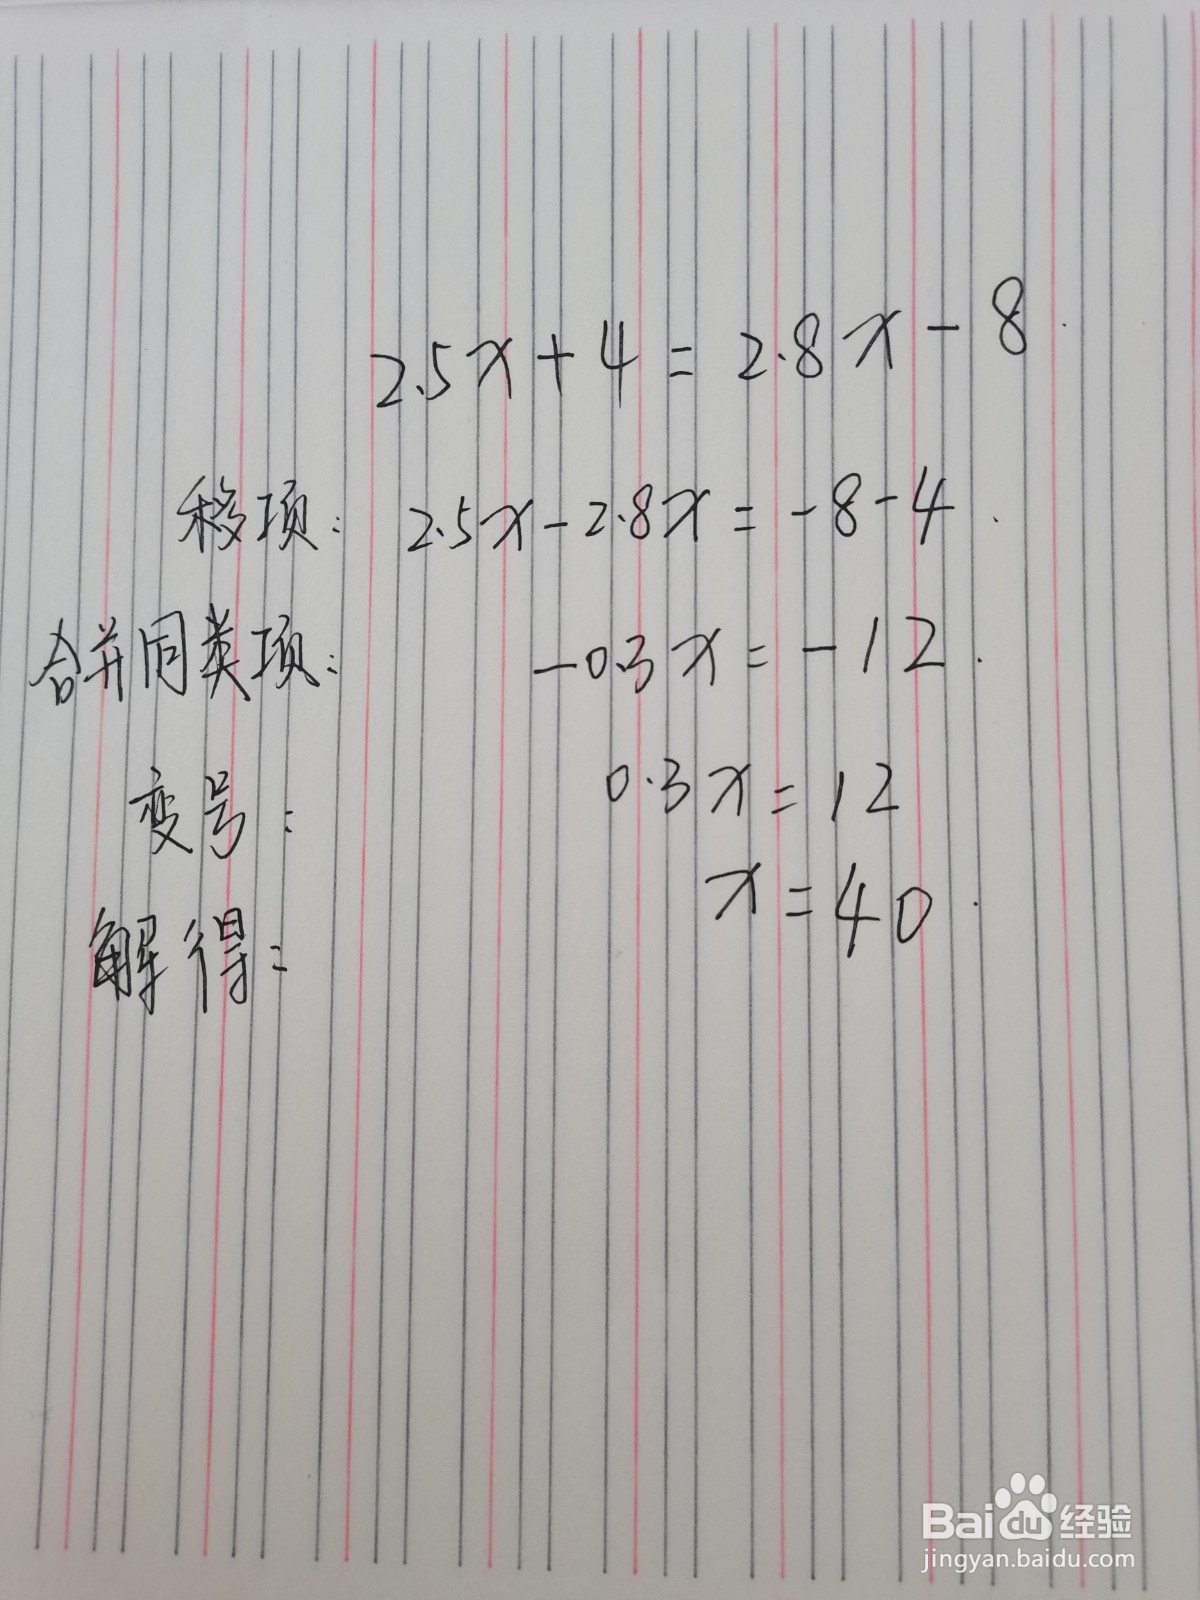 2.5x+4=2.8x-8
移项: 2.5x-2.8x=-8-4.
合并同类项: -0.3x=-12.
变号: 0.3x=12
解得: x=40.
Baidu经验
jingyan.baidu.com